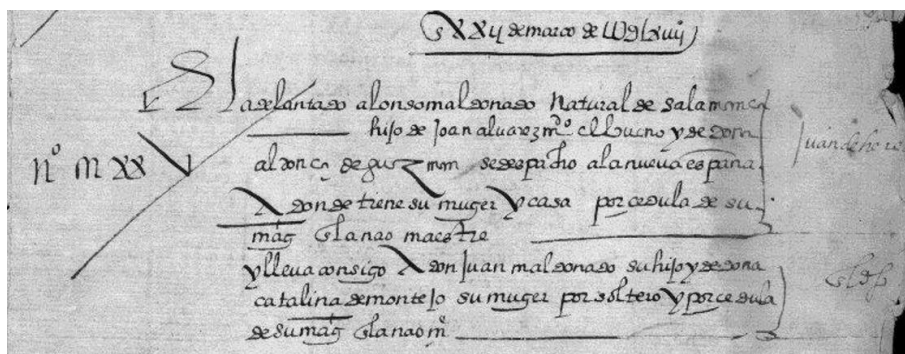 XXij de março de
El adelantado alonso maldonado natural de salamanca
hijo de joan alvarez mº el bueno y de doña
nº m xx V
aldonça de guzman se despacho a la nueva españa
a donde tiene su muger y casa por cedula de su
mag en la nao maestre
y lleva consigo a don juan maldonado su hijo y de doña
catalina de montejo su muger por soltero y por cedula
de su mag en la nao mº